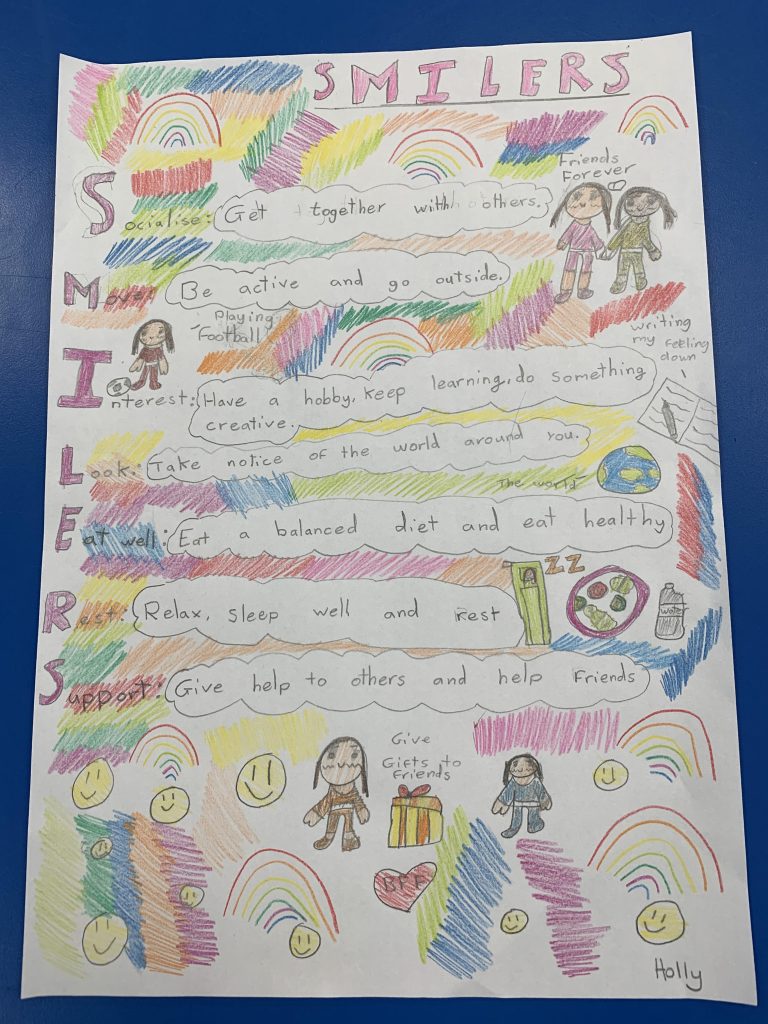 SMILERS
Friends
Forever
Socialise: Get together with others.
Move: Be active and go outside.
Playing
Football
writing
my feeling
down
Interest: Have a hobby, keep learning, do something
creative.
Look: Take notice of the world around you.
The world
Eat well: Eat a balanced diet and eat healthy
ZZ
Rest: Relax, sleep well and Rest
water
Support: Give help to others and help Friends
Give
Gifts to
Friends
BFF
Holly